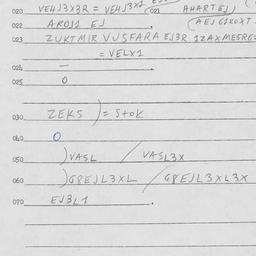 020 VEHJ3X3R = VEHJ3X1 021 AHARTEJ
022 AROJ1 EJ . (AEJG1ROXT
023 ZUKTMIR VUSFARA EJ3R 1ZAXMESRE
= VELX1
024 —
025 O
030 ZEKS ) = STOK
040 O
050 ) VASL / VASL3X
060 ) G8EJL3XL / G8EJL3XL3X
070 EJ3L1 .